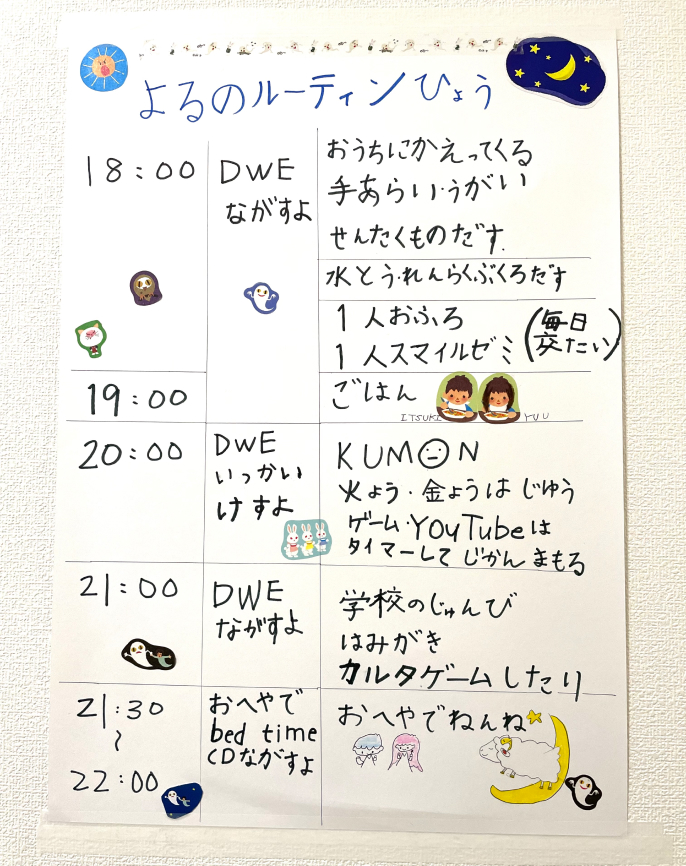 よるのルーティンひょう
18:00
DWE
ながすよ
おうちにかえってくる
手あらい・うがい
せんたくものだす
水とう・れんらくぶくろだす
1人おふろ
1人スマイルゼミ
(毎日
交たい)
19:00
ごはん
ITSUKI
RYU
20:00
DWE
いっかい
けすよ
KUMON
火よう・金ようは じゆう
ゲーム・YouTubeは
タイマーして じかん まもる
21:00
DWE
ながすよ
学校のじゅんび
はみがき
カルタゲームしたり
21:30
~
22:00
おへやで
bed time
CDながすよ
おへやでねんね